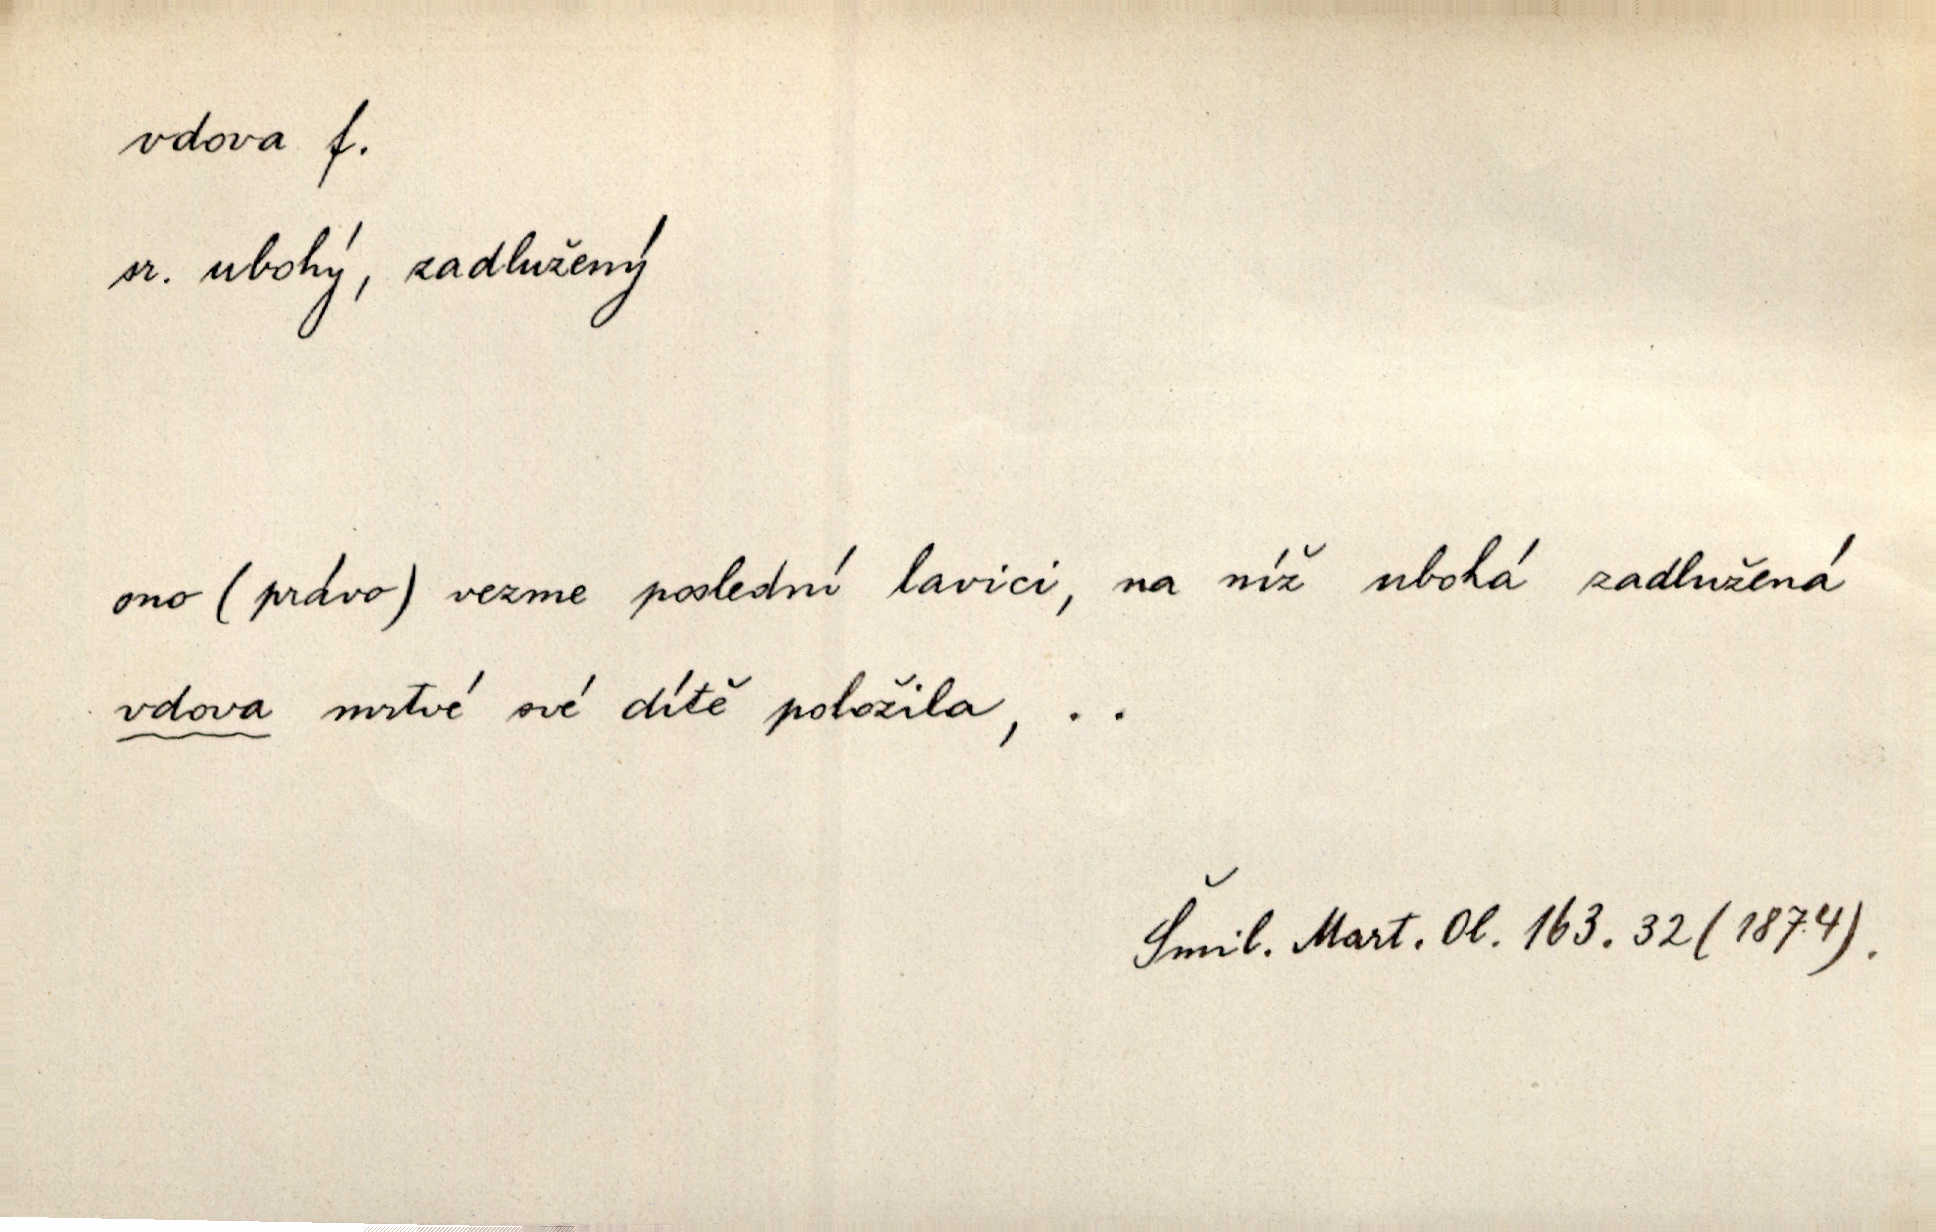 vdova f.
sr. ubohý, zadlužený
ono (právo) vezme poslední lavici, na níž ubohá zadlužená
vdova mrtvé své dítě položila, . .
Šmil. Mart. Ol. 163. 32 (1874).